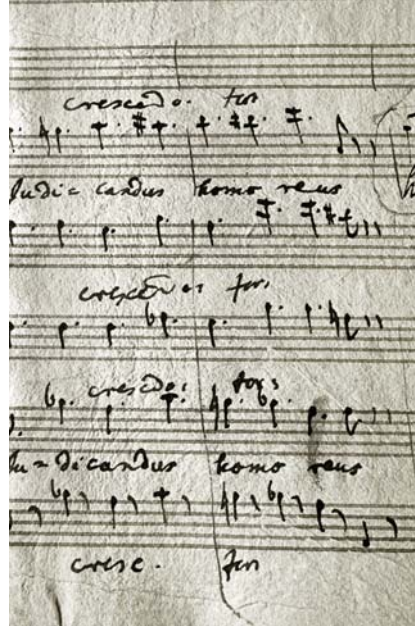 crescdo. for
Judi= candus homo reus
for:
crescdo: for:
Ju=dicandus homo reus
cresc. for